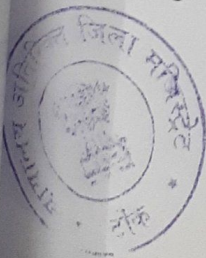 न्यायालय अतिरिक्त जिला मजिस्ट्रेट